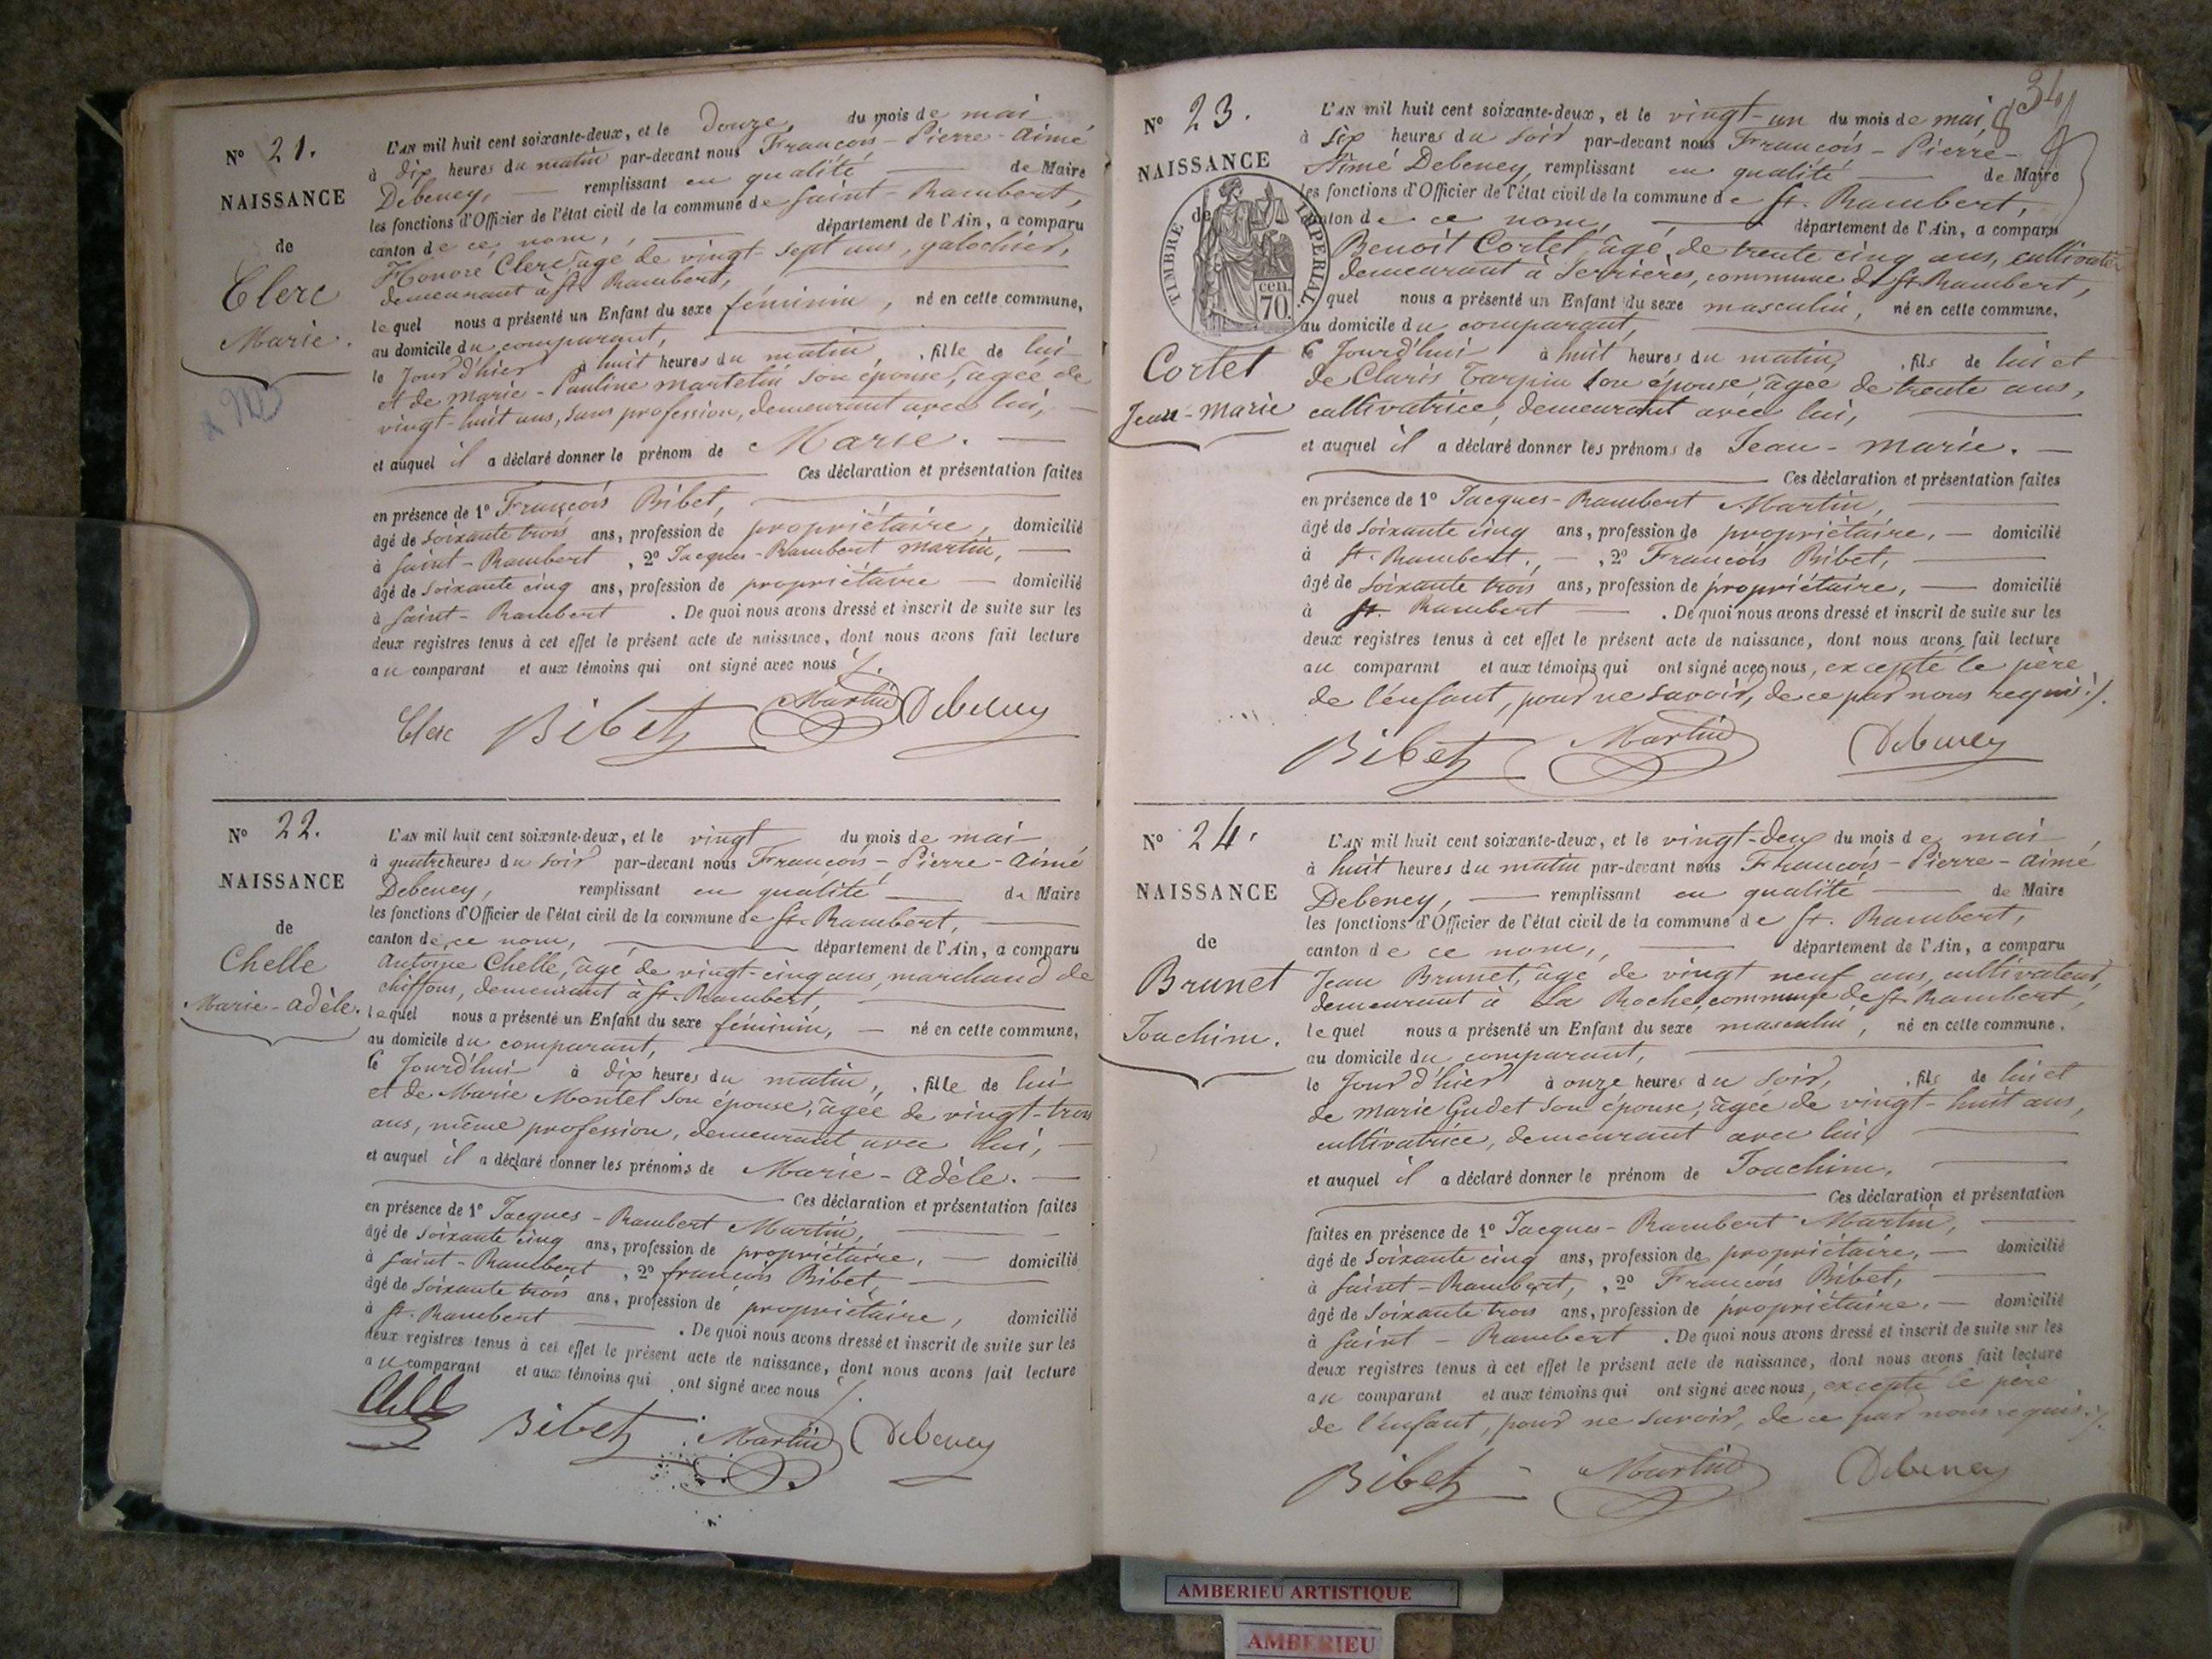 N° 21.
NAISSANCE
de
Clerc
Marie.
L'AN mil huit cent soixante-deux, et le Douze du mois de mai
à dix heures du matin par-devant nous François-Pierre-Aimé
Debeney, remplissant en qualité de Maire
les fonctions d'Officier de l'état civil de la commune de Saint-Rambert,
canton de ce nom, département de l'Ain, a comparu
Honoré Clerc, âgé de vingt-sept ans, galochier,
demeurant à St. Rambert,
lequel nous a présenté un Enfant du sexe féminin, né en cette commune,
au domicile du comparant,
le jour d'hier à huit heures du matin, fille de lui
et de Marie-Pauline Martelin son épouse, âgée de
vingt-huit ans, sans profession, demeurant avec lui,
et auquel il a déclaré donner le prénom de Marie.
Ces déclaration et présentation faites
en présence de 1° François Bibet,
âgé de soixante trois ans, profession de propriétaire, domicilié
à Saint-Rambert, 2° Jacques-Rambert Martin,
âgé de soixante cinq ans, profession de propriétaire domicilié
à Saint-Rambert. De quoi nous avons dressé et inscrit de suite sur les
deux registres tenus à cet effet le présent acte de naissance, dont nous avons fait lecture
au comparant et aux témoins qui ont signé avec nous
Clerc Bibet Martin Debeney
N° 22.
NAISSANCE
de
Chelle
Marie-Adèle.
L'AN mil huit cent soixante-deux, et le vingt du mois de mai
à quatre heures du soir par-devant nous François-Pierre-Aimé
Debeney, remplissant en qualité de Maire
les fonctions d'Officier de l'état civil de la commune de St. Rambert,
canton de ce nom, département de l'Ain, a comparu
Antoine Chelle, âgé de vingt-cinq ans, marchand de
chiffons, demeurant à St. Rambert,
lequel nous a présenté un Enfant du sexe féminin, né en cette commune,
au domicile du comparant,
ce jourd'hui à dix heures du matin, fille de lui
et de Marie Montel son épouse, âgée de vingt-trois
ans, même profession, demeurant avec lui,
et auquel il a déclaré donner les prénoms de Marie-Adèle.
Ces déclaration et présentation faites
en présence de 1° Jacques-Rambert Martin,
âgé de soixante cinq ans, profession de propriétaire, domicilié
à Saint-Rambert, 2° François Bibet,
âgé de soixante trois ans, profession de propriétaire, domicilié
à St. Rambert. De quoi nous avons dressé et inscrit de suite sur les
deux registres tenus à cet effet le présent acte de naissance, dont nous avons fait lecture
au comparant et aux témoins qui ont signé avec nous
Bibet Martin Debeney
34
N° 23.
NAISSANCE
de
TIMBRE IMPERIAL.
70. cen
Cortet
Jean-Marie
L'AN mil huit cent soixante-deux, et le vingt-un du mois de mai
à six heures du soir par-devant nous François-Pierre-
Aimé Debeney, remplissant en qualité de Maire
les fonctions d'Officier de l'état civil de la commune de St. Rambert,
canton de ce nom, département de l'Ain, a comparu
Benoit Cortet, âgé de trente cinq ans, cultivateur
demeurant à Serrières, commune de St Rambert,
quel nous a présenté un Enfant du sexe masculin, né en cette commune,
au domicile du comparant,
ce jourd'hui à huit heures du matin, fils de lui et
de Claris Tarpin son épouse âgée de trente ans,
cultivatrice, demeurant avec lui,
et auquel il a déclaré donner les prénoms de Jean-Marie.
Ces déclaration et présentation faites
en présence de 1° Jacques-Rambert Martin,
âgé de soixante cinq ans, profession de propriétaire, domicilié
à St. Rambert, 2° François Bibet,
âgé de soixante trois ans, profession de propriétaire, domicilié
à St. Rambert. De quoi nous avons dressé et inscrit de suite sur les
deux registres tenus à cet effet le présent acte de naissance, dont nous avons fait lecture
au comparant et aux témoins qui ont signé avec nous, excepté le père
de l'enfant, pour ne savoir, de ce par nous requis.
Bibet Martin Debeney
N° 24.
NAISSANCE
de
Brunet
Joachim.
L'AN mil huit cent soixante-deux, et le vingt-deux du mois de mai
à huit heures du matin par-devant nous François-Pierre-Aimé
Debeney, remplissant en qualité de Maire
les fonctions d'Officier de l'état civil de la commune de St. Rambert,
canton de ce nom, département de l'Ain, a comparu
Jean Brunet, âgé de vingt neuf ans, cultivateur,
demeurant à La Roche, commune de St. Rambert,
lequel nous a présenté un Enfant du sexe masculin, né en cette commune,
au domicile du comparant,
le jour d'hier à onze heures du soir, fils de lui et
de Marie Gudet son épouse, âgée de vingt-huit ans,
cultivatrice, demeurant avec lui,
et auquel il a déclaré donner le prénom de Joachim,
Ces déclaration et présentation
faites en présence de 1° Jacques-Rambert Martin,
âgé de soixante cinq ans, profession de propriétaire, domicilié
à Saint-Rambert, 2° François Bibet,
âgé de soixante trois ans, profession de propriétaire, domicilié
à Saint-Rambert. De quoi nous avons dressé et inscrit de suite sur les
deux registres tenus à cet effet le présent acte de naissance, dont nous avons fait lecture
au comparant et aux témoins qui ont signé avec nous, excepté le père
de l'enfant, pour ne savoir, de ce par nous requis.
Bibet Martin Debeney
AMBERIEU ARTISTIQUE
AMBERIEU